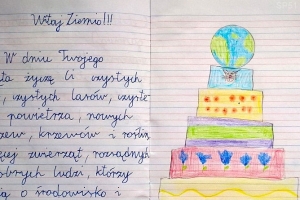 Witaj Ziemio!!!
W dniu Twojego
ta życzę Ci czystych
, czystych lasów, czyste
powietrza, nowych
zew, krzewów i roślin
cej zwierząt, rozsądnych
obrych ludzi, którzy
ją o środowisko i